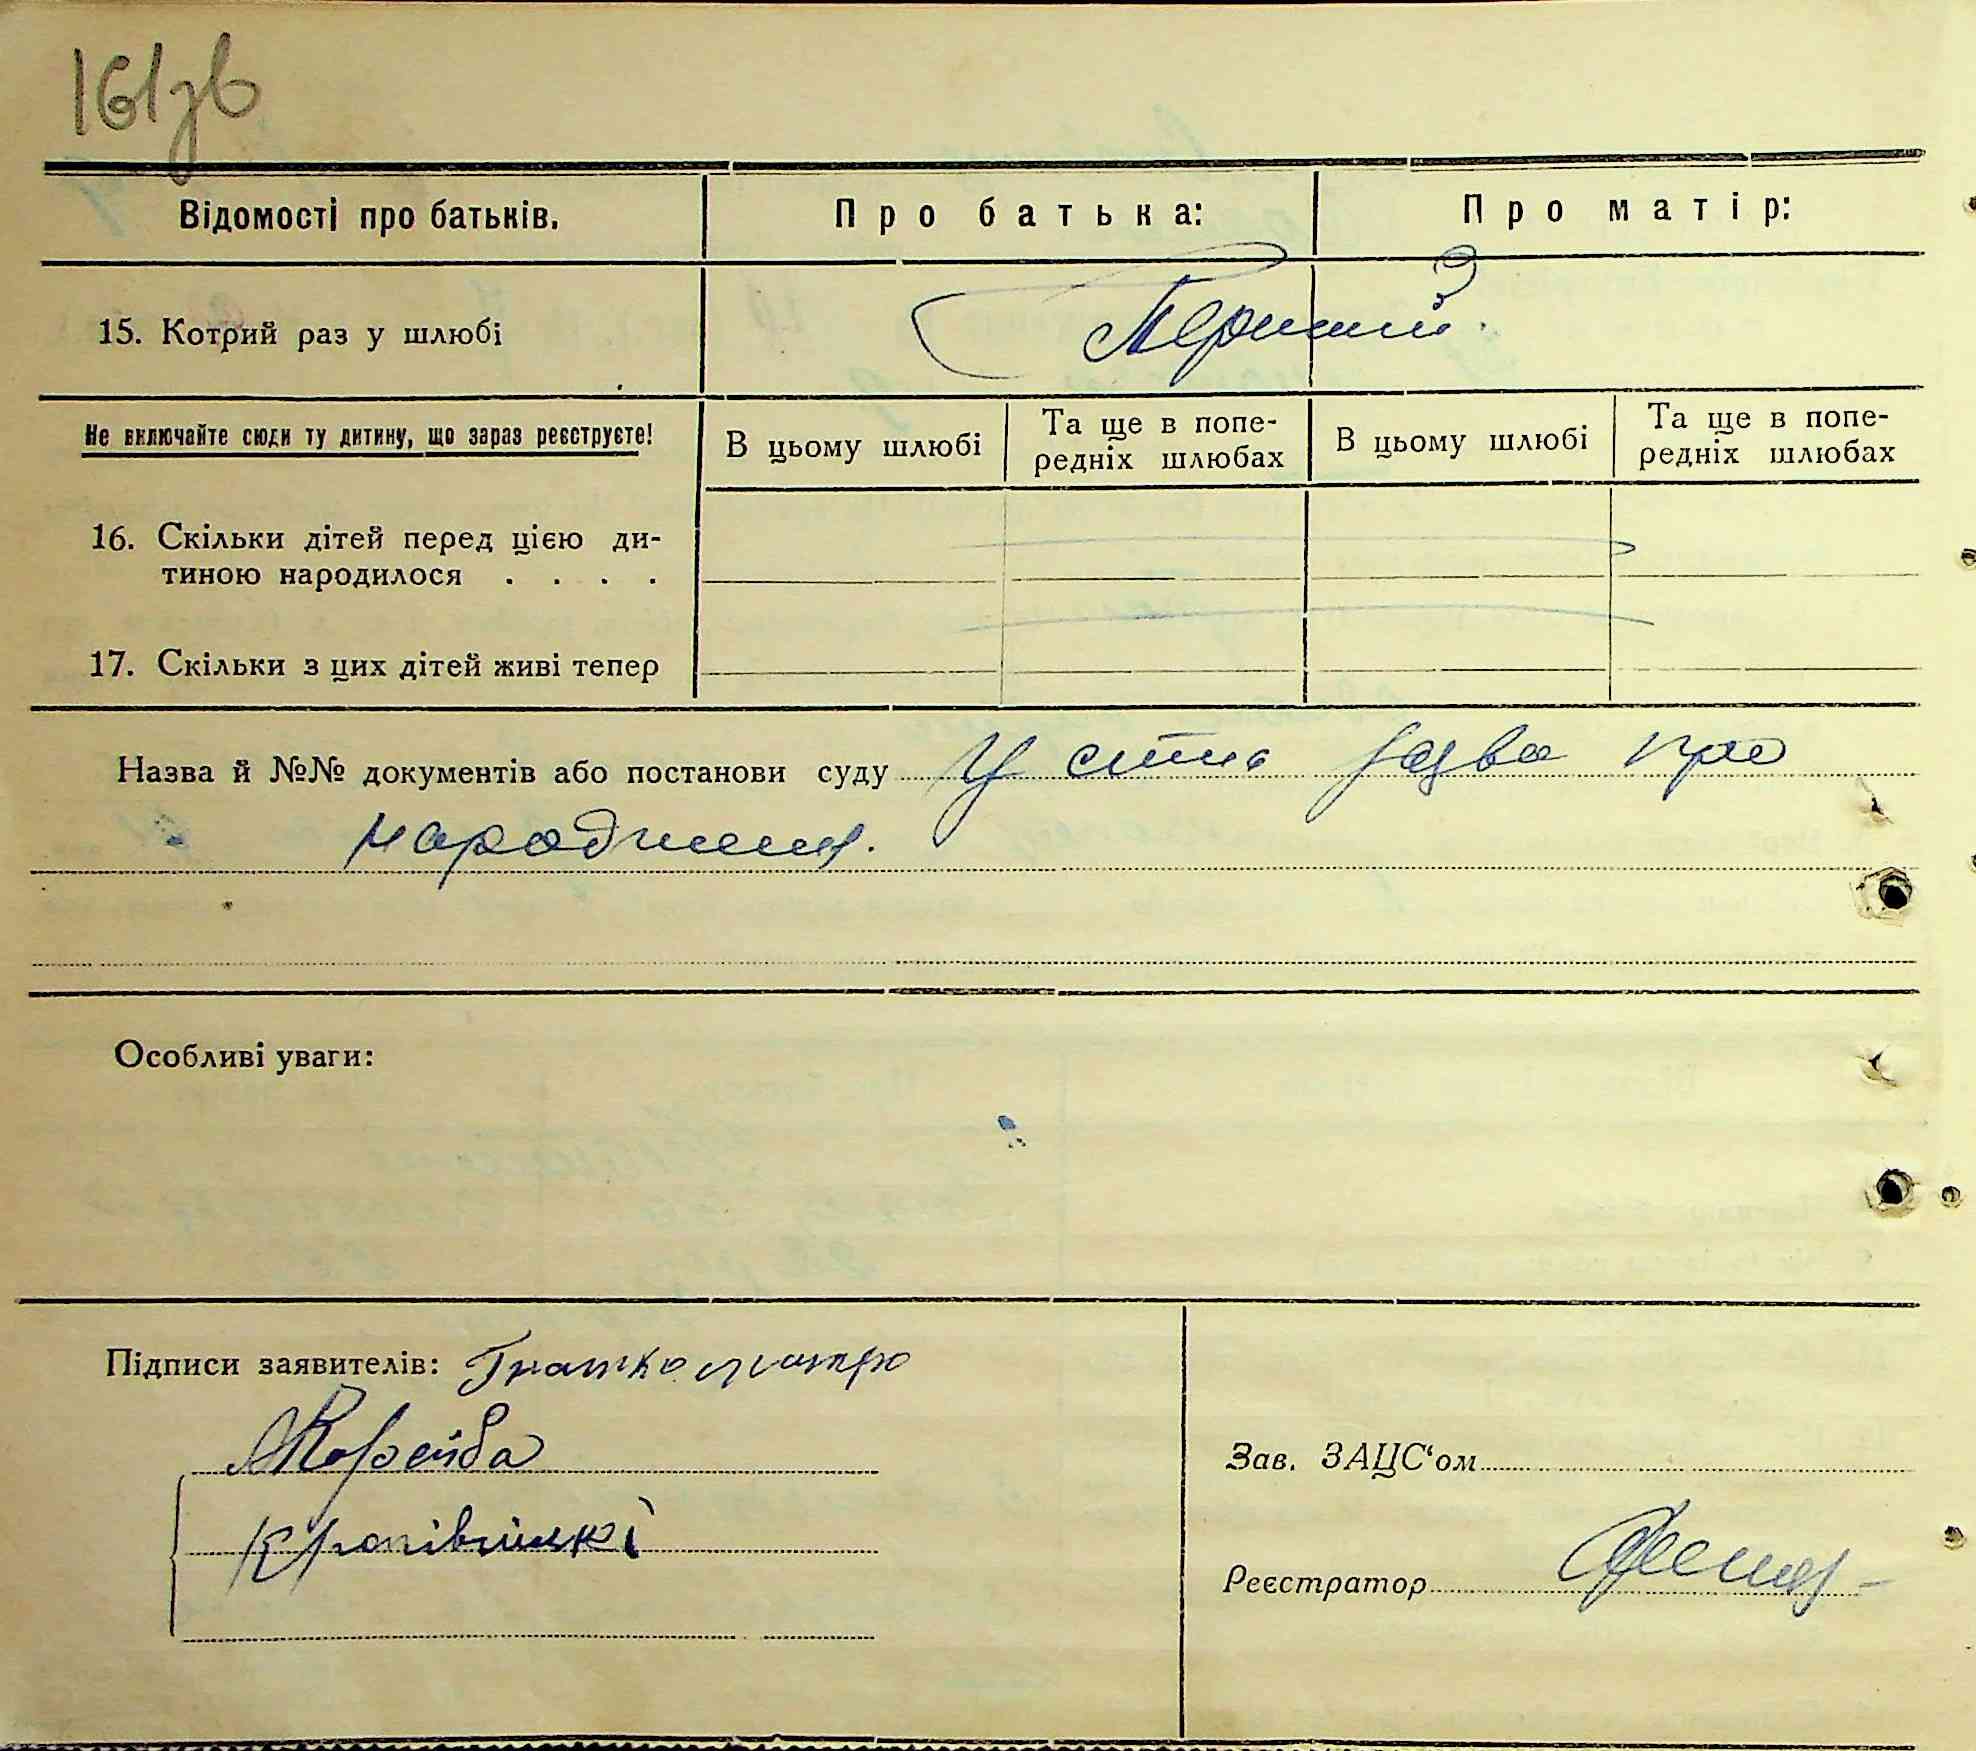 161зв
Відомості про батьків. Про батька: Про матір:
15. Котрий раз у шлюбі Перший.
Не включайте сюди ту дитину, що зараз реєструєте!
В цьому шлюбі Та ще в попе-
редніх шлюбах В цьому шлюбі Та ще в попе-
редніх шлюбах
16. Скільки дітей перед цією ди-
тиною народилося . . . .
17. Скільки з цих дітей живі тепер
Назва й №№ документів або постанови суду Устна заява про
народження.
Особливі уваги:
Підписи заявителів:
Корейба
Кропівницкі
Зав. ЗАЦС‘ом
Реєстратор